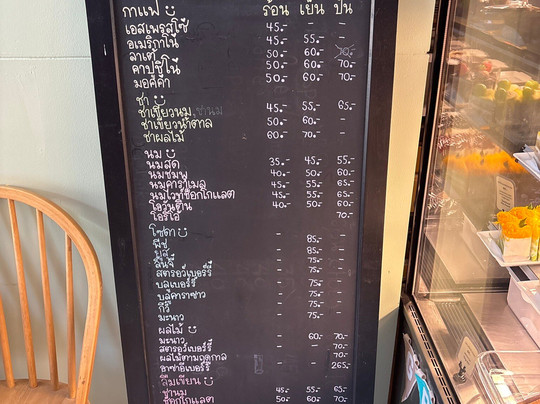 กาแฟ ร้อน เย็น ปั่น
เอสเพรสโซ่ 45.- - -
อเมริกาโน่ 45.- 55.- -
ลาเต้ 50.- 60.- 70.-
คาปูชิโน่ 50.- 60.- 70.-
มอคค่า 50.- 60.- 70.-
ชา
ชาเขียวนม,ชานม 45.- 55.- 65.-
ชาเขียวน้ำตาล 50.- 60.- -
ชาผลไม้ 60.- 70.- -
นม
นมสด 35.- 45.- 55.-
นมชมพู 40.- 50.- 60.-
นมคาราเมล 45.- 55.- 65.-
นมไวท์ช็อกโกแลต 45.- 55.- 65.-
โอวันติน 40.- 50.- 60.-
โอริโอ้ 70.-
โซดา - -
พีช - 85.- -
- 85.- -
ลิ้นจี่ - 75.- -
สตรอว์เบอร์รี่ - 75.- -
บลูเบอร์รี่ - 75.- -
บลูคาราซาว - 75.- -
กีวี่ - 75.- -
มะนาว
ผลไม้
มะนาว - 60.- 70.-
สตรอว์เบอร์รี่ - - 70.-
ผลไม้ตามฤดูกาล 70.-
อาซาอิเบอร์รี่ 265.-
ลืมเขียน
ชานม 45.- 55.- 65.-
ช็อกโกแลต 50.- 60.- 70.-